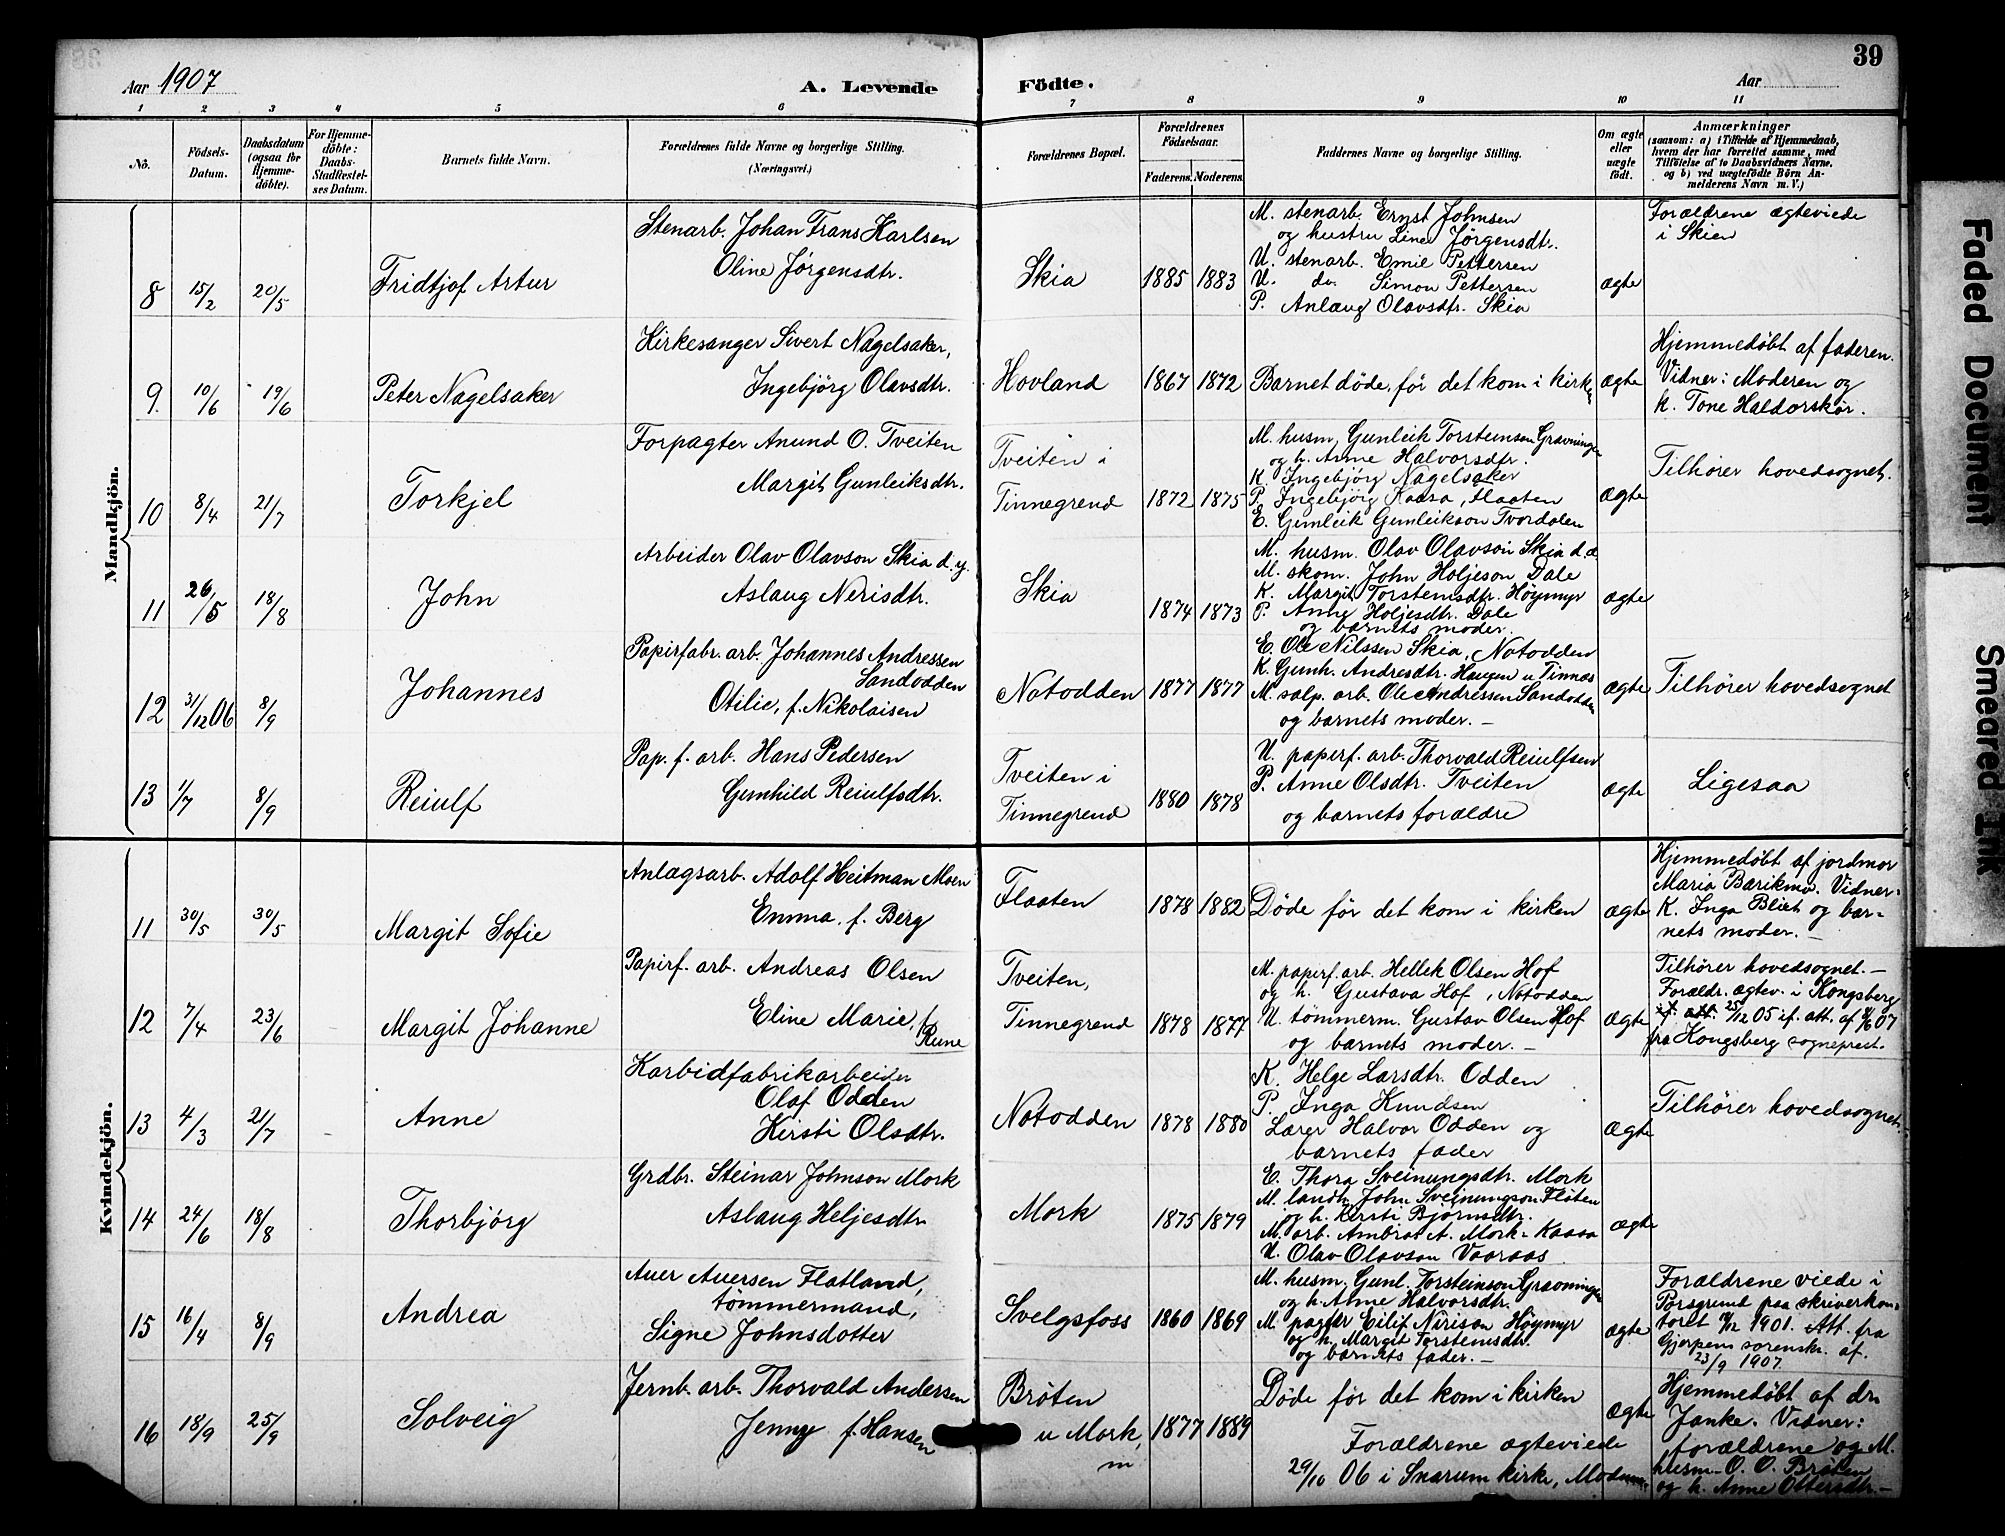 39
Aar 1907
A. Levende Födte.
Aar
1 2 3 4 5 6 7 8 9 10 11
No.
Födsels-Datum.
Daabsdatum (ogsaa for Hjemmedöbte).
For Hjemmedöbte: Daabs-Stadfæstelses Datum.
Barnets fulde Navn.
Forældrenes fulde Navne og borgerlige Stilling.
(Næringsvei.)
Forældrenes Bopæl.
Forældrenes Födselsaar.
Faderens. Moderens.
Faddernes Navne og borgerlige Stilling.
Om ægte eller uægte födt.
Anmærkninger
(saasom: a) i Tilfælde af Hjemmedaab,
hvem der har forrettet samme, med
Tilföielse af to Daabsvidners Navne,
og b) ved uægtefödte Börn An-
melderens Navn m. V.)
Mandkjön.
8 15/2 20/5 Fridtjof Artur
Stenarb. Johan Frans Karlsen
Oline Jørgensdtr.
Skia 1885 1883
M. stenarb. Ernst Johnsen
og hustru Line Jørgensdtr.
U. stenarb. Emil Pettersen
U. do. Simon Pettersen
P. Anlaug Olavsdtr. Skia
ægte
Forældrene ægteviede
i Skien
9. 10/6 19/6 Peter Nagelsaker
Kirkesanger Sivert Nagelsaker,
Ingebjörg Olavsdtr.
Hovland 1867 1872
Barnet døde, før det kom i kirken
ægte
Hjemmedøbt af faderen.
Vidner: Moderen og
K. Tone Haldorskår.
10 8/4 21/7 Torkjel
Forpagter Anund O. Tveiten
Margit Gunleiksdtr.
Tveiten i
Tinnegrend 1872 1875
M. husm. Gunleik Torsteinson Gravningen
og h. Anne Halvorsdtr.
K. Ingebjörg Nagelsaker
P. Ingebjörg Kaasa, Flaaten
E. Gunleik Gunleikson Tvordalen
ægte
Tilhører hovedsognet.
11 26/5 18/8 John
Arbeider Olav Olavson Skia d.y.
Aslaug Nerisdtr.
Skia 1874 1873
M. husm. Olav Olavson Skia d.æ
M. skom. John Holjeson Dale
K. Margit Torsteinsdtr. Höymyr
P. Anne Holjesdtr. Dale
og barnets moder.
ægte
12 31/12 06 8/9 Johannes
Papirfabr. arb. Johannes Andressen
Sandodden
Otilie, f. Nikolaisen
Notodden 1877 1877
E. Ole Nilssen Skia, Notodden
K. Gunh. Andresdtr. Haugen u Tinnes
M. salp. arb. Ole Andressen Sandodden
og barnets moder. —
ægte
Tilhører hovedsognet
13 1/7 8/9 Reiulf
Pap. f. arb. Hans Pedersen
Gunhild Reiulfsdtr.
Tveiten i
Tinnegrend 1880 1878
U. paperf. arb. Thorvald Reiulfsen
P. Anne Olsdtr. Tveiten
og barnets forældre
ægte
Ligesaa
Kvindekjön.
11 30/5 30/5 Margit Sofie
Anlægsarb. Adolf Heitman Moen
Emma, f. Berg
Flaaten 1878 1882
Døde før det kom i kirken
ægte
Hjemmedøbt af jordmor
Maria Bærikmo. Vidner:
K. Inga Bliet og bar-
nets moder. —
12 7/4 23/6 Margit Johanne
Papirf. arb. Andreas Olsen
Eline Marie, f.
Rune
Tveiten,
Tinnegrend 1878 1877
M. papirf. arb. Hellek Olsen Hof
og h. Gustava Hof, Notodden
U. tömmerm. Gustav Olsen Hof
og barnets moder. —
ægte
Tilhører hovedsognet. —
Forældr. ægtev. i Kongsberg
25/12 05 if. att. af 4/6 07
fra Kongsberg sogneprest.
13 4/3 21/7 Anne
Karbidfabrikarbeider
Olaf Odden
Kirsti Olsdtr.
Notodden 1878 1880
K. Helge Larsdtr. Odden
P. Inga Knudsen
Lærer Halvor Odden og
barnets fader
ægte
Tilhører hovedsognet.
14 24/6 18/8 Thorbjörg
Grdbr. Steinar Johnson Mork
Aslaug Heljesdtr
Mork 1875 1879
E. Thora Sveinungsdtr. Mork
M. landh. John Sveinungson Flöten
og h. Kirsti Bjørnsdtr.
M. arb. Ambrot A. Mork-Kaasa
U. Olav Olavson Vaaraas.
ægte
15 16/4 8/9 Andrea
Auer Auersen Flatland,
tømmermand,
Signe Johnsdotter
Svelgsfoss 1860 1869
M. husm. Gunl. Torsteinson Gravningen
og h. Anne Halvorsdtr.
M. parter Eilif Nirison Höymyr
og h. Margit Torsteinsdtr.
og barnets fader. —
ægte
Forældrene viede i
Porsgrund paa skriverkon-
toret 1901. Att. fra
Gjerpens sorenskr. af.
23/9 1907
16 18/9 25/9 Solveig
Jernb. arb. Thorvald Andersen
Jenny f. Hansen
Bröten
u Mork, 1877 1889
m
Døde før det kom i kirken
Forældrene ægteviede
29/10 06 i Snarum kirke, Modum.
ægte
Hjemmedøbt af dr.
Janke. Vidner:
forældrene og M.
husm. O. O. Bröten
og h. Anne Ottersdtr. —
Faded Document
Smeared Ink